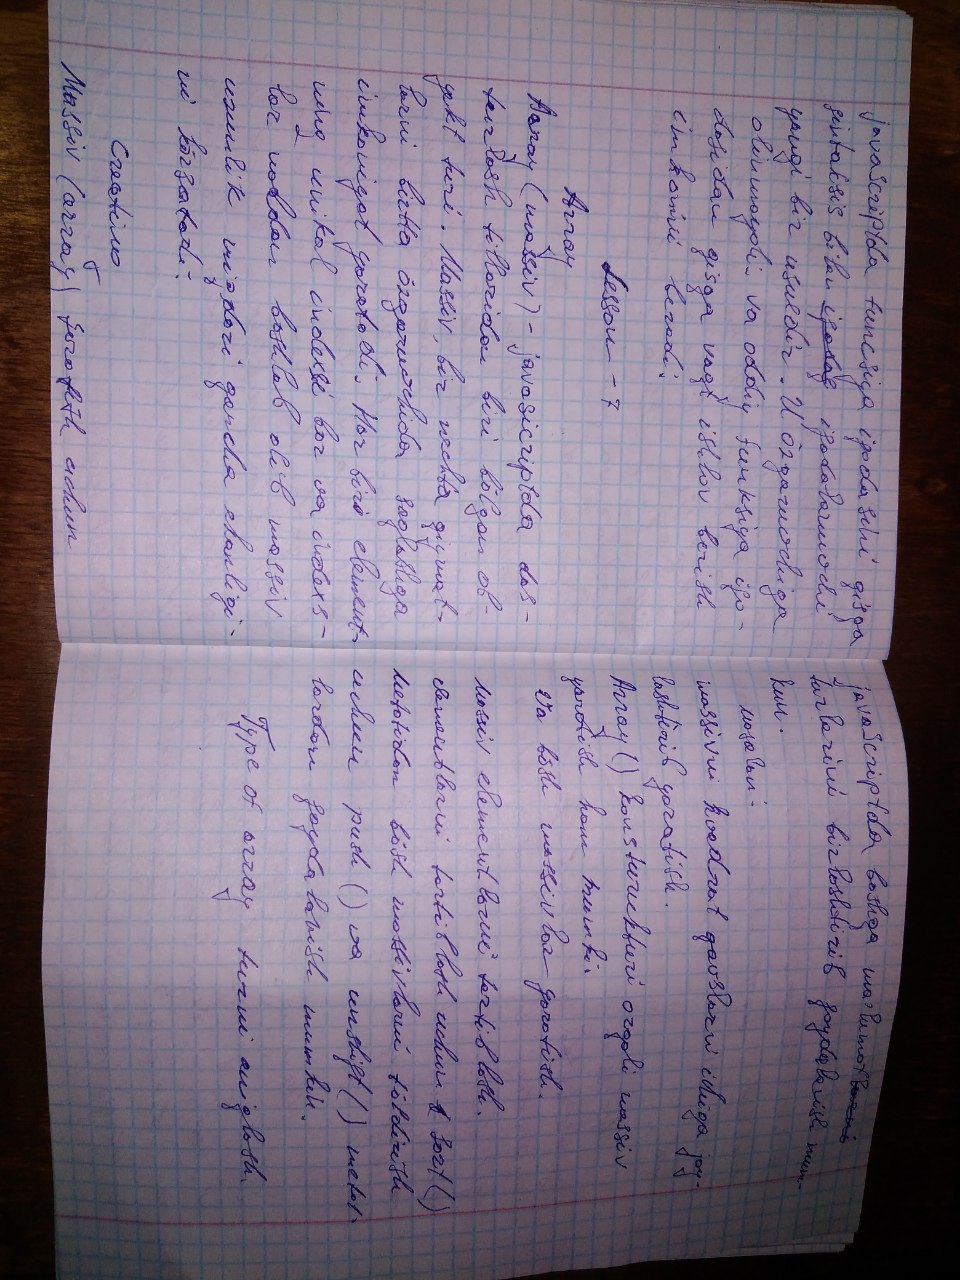 javascriptda funcsiya ifodasini qisqa
sintaksis bilan ifodalarmochi
yangi bir usuldir. U o'zgarmochiga
olinmaydi va oddiy funksiya ifo-
dasidan qisqa vaqt ishlov berish
imkonini beradi.
Lesson - 7
Array
Array (massiv) - javascriptda das-
turlash tillaridan biri bo'lgan ob-
yekt turi. Massiv, bir nechta qiymat-
larni bitta o'zgaruvchida saqlashga
imkoniyat yaratadi. Har biri element-
ning unikal indeksi bor va indeks-
lar noldan boshlab olib massiv
uzunlik miqdori qancha ekanligi-
ni ko'rsatadi.
Creating
Massiv (array) yaratish uchun
javascriptda boshqa ma'lumot
turlarini birlashtirib foydalanish mum-
kin.
masalan.
massivni kvadrat qavslarni ichiga joy-
lashtirib yaratish.
Array() konsturukturi orqali massiv
yaratish ham mumkin.
Va bosh massivlar yaratish.
Massiv elementlarni tartiblash.
elementlarni tartiblash uchun sort()
metotidan bo'sh massivlarni to'ldirish
uchun push() va unshift() metot-
lardan foydalanish mumkin.
Type of array turni aniqlash.